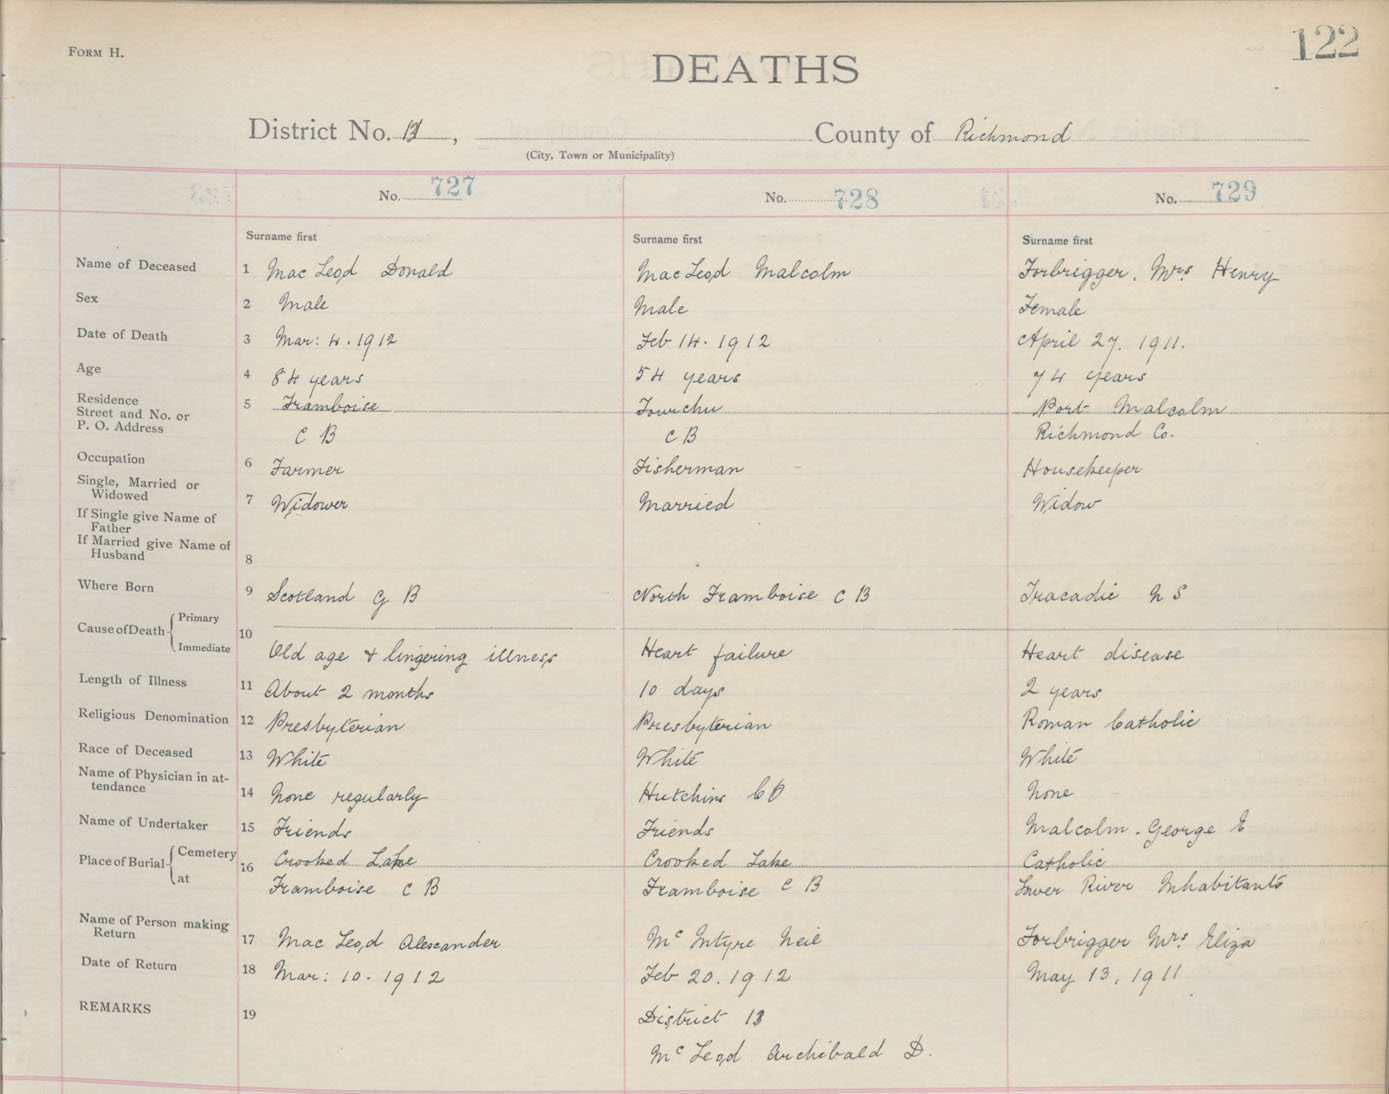 122
FORM H.
DEATHS
District No. 13, County of Richmond
(City, Town or Municipality)
No. 727 No. 728 No. 729
Surname first Surname first Surname first
Name of Deceased 1 Mac Leod Donald MacLeod Malcolm Forbrigger, Mrs Henry
Sex 2 Male Male Female
Date of Death 3 Mar: 4. 1912 Feb 14. 1912 April 27. 1911.
Age 4 84 years 54 years 74 years
Residence
Street and No. or
P. O. Address
5 Framboise Fourchu Port Malcolm
C B C B Richmond Co.
Occupation 6 Farmer Fisherman Housekeeper
Single, Married or
Widowed
7 Widower Married Widow
If Single give Name of
Father
If Married give Name of
Husband
8
Where Born 9 Scotland G B North Framboise C B Tracadie N S
Cause of Death Primary
Immediate
10 Old age + lingering illness Heart failure Heart disease
Length of Illness 11 About 2 months 10 days 2 years
Religious Denomination 12 Presbyterian Presbyterian Roman Catholic
Race of Deceased 13 White White White
Name of Physician in at-
tendance
14 None regularly Hutchins None
Name of Undertaker 15 Friends Friends Malcolm. George E
Place of Burial Cemetery
at
16 Crooked Lake Crooked Lake Catholic
Framboise C B Framboise C B Lower River Inhabitants
Name of Person making
Return
17 Mac Leod Alexander Mc Intyre Neil Forbrigger Mrs Eliza
Date of Return 18 Mar: 10. 1912 Feb 20. 1912 May 13, 1911
REMARKS 19 District 13
Mc Leod Archibald D.